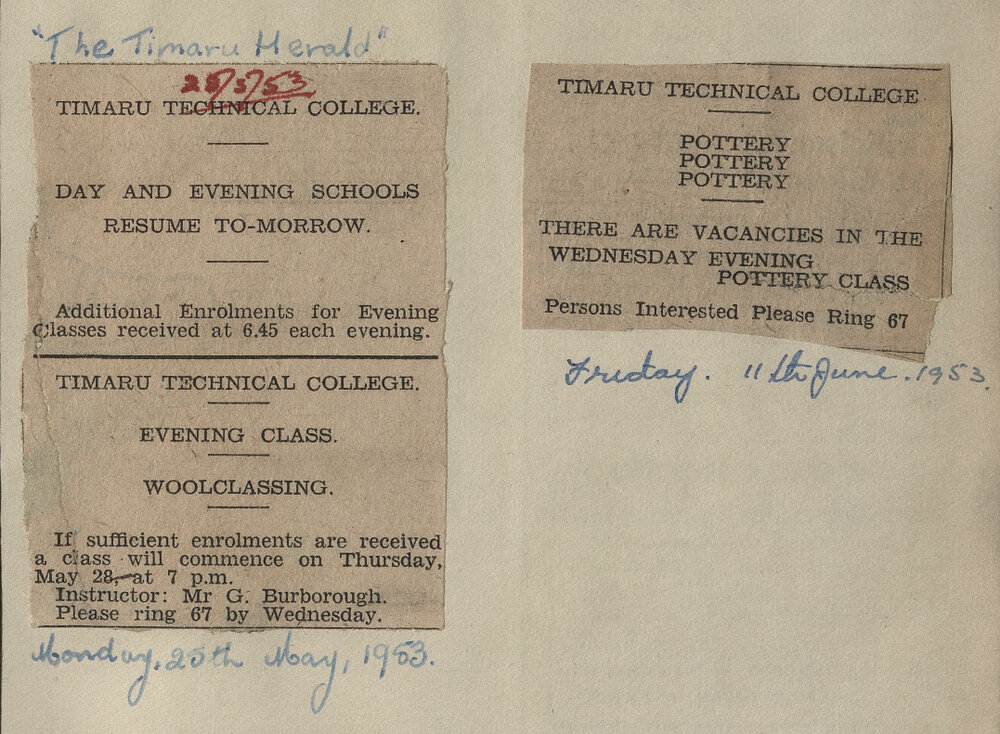 "The Timaru Herald"
25/5/53
TIMARU TECHNICAL COLLEGE.
DAY AND EVENING SCHOOLS
RESUME TO-MORROW.
Additional Enrolments for Evening
Classes received at 6.45 each evening.
TIMARU TECHNICAL COLLEGE.
EVENING CLASS.
WOOLCLASSING.
If sufficient enrolments are received
a class will commence on Thursday,
May 28, at 7 p.m.
Instructor: Mr G. Burborough.
Please ring 67 by Wednesday.
Monday, 25th May, 1953.
TIMARU TECHNICAL COLLEGE
POTTERY
POTTERY
POTTERY
THERE ARE VACANCIES IN THE
WEDNESDAY EVENING
POTTERY CLASS
Persons Interested Please Ring 67
Friday. 11th June. 1953.